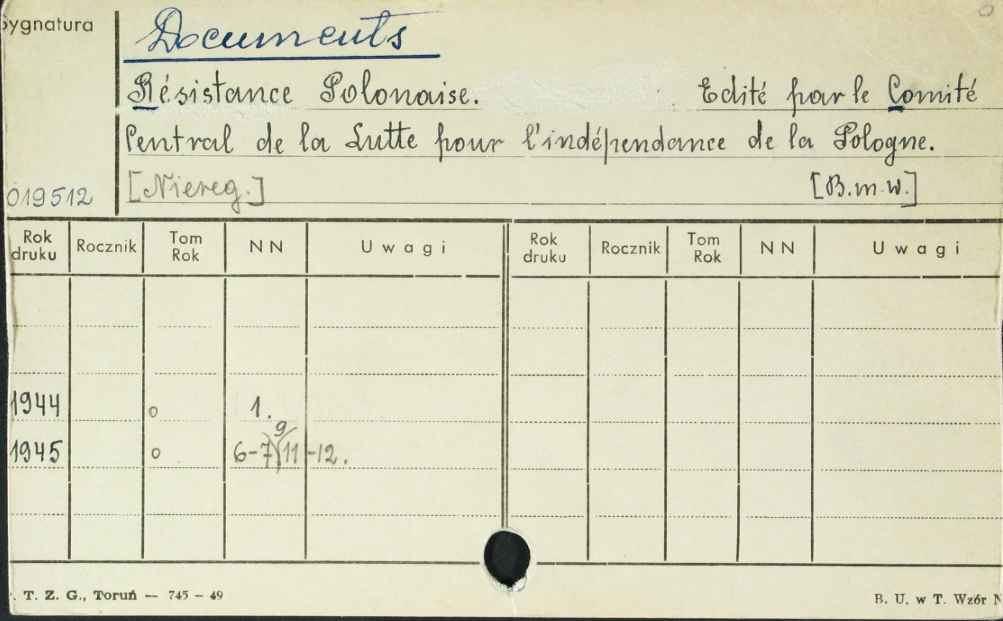 Sygnatura
Documents
Résistance Polonaise. Edité par le Comité
Central de la Lutte pour l'indépendance de la Pologne.
019512 [Niereg.] [B.m.w.]
Rok druku Rocznik Tom Rok NN Uwagi Rok druku Rocznik Tom Rok NN Uwagi
1944 o 1.
9
1945 o 6-7)(11-12.
. T. Z. G., Toruń — 745 - 49 B. U. w T. Wzór N